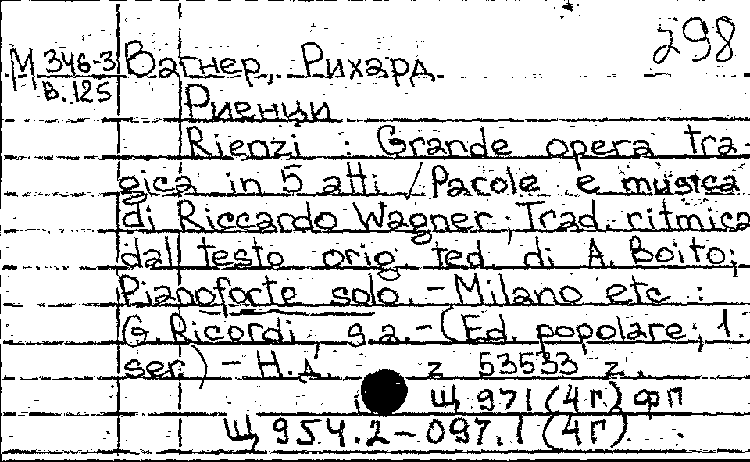 298
М 346-3 Вагнер, Рихард
В.125
Риенци
Rienzi : Grande opera tra-
gica in 5 atti / Parole e musica
di Riccardo Wagner; Trad. ritmica
dall testo orig. ted. di A. Boito;
Pianoforte solo. - Milano etc :
G. Ricordi, s.a. - (Ed. popolare; 1.
ser) - Н.д. z 53533 z.
Щ 971 (4Г) фп
Щ 954.2-097.1 (4Г)